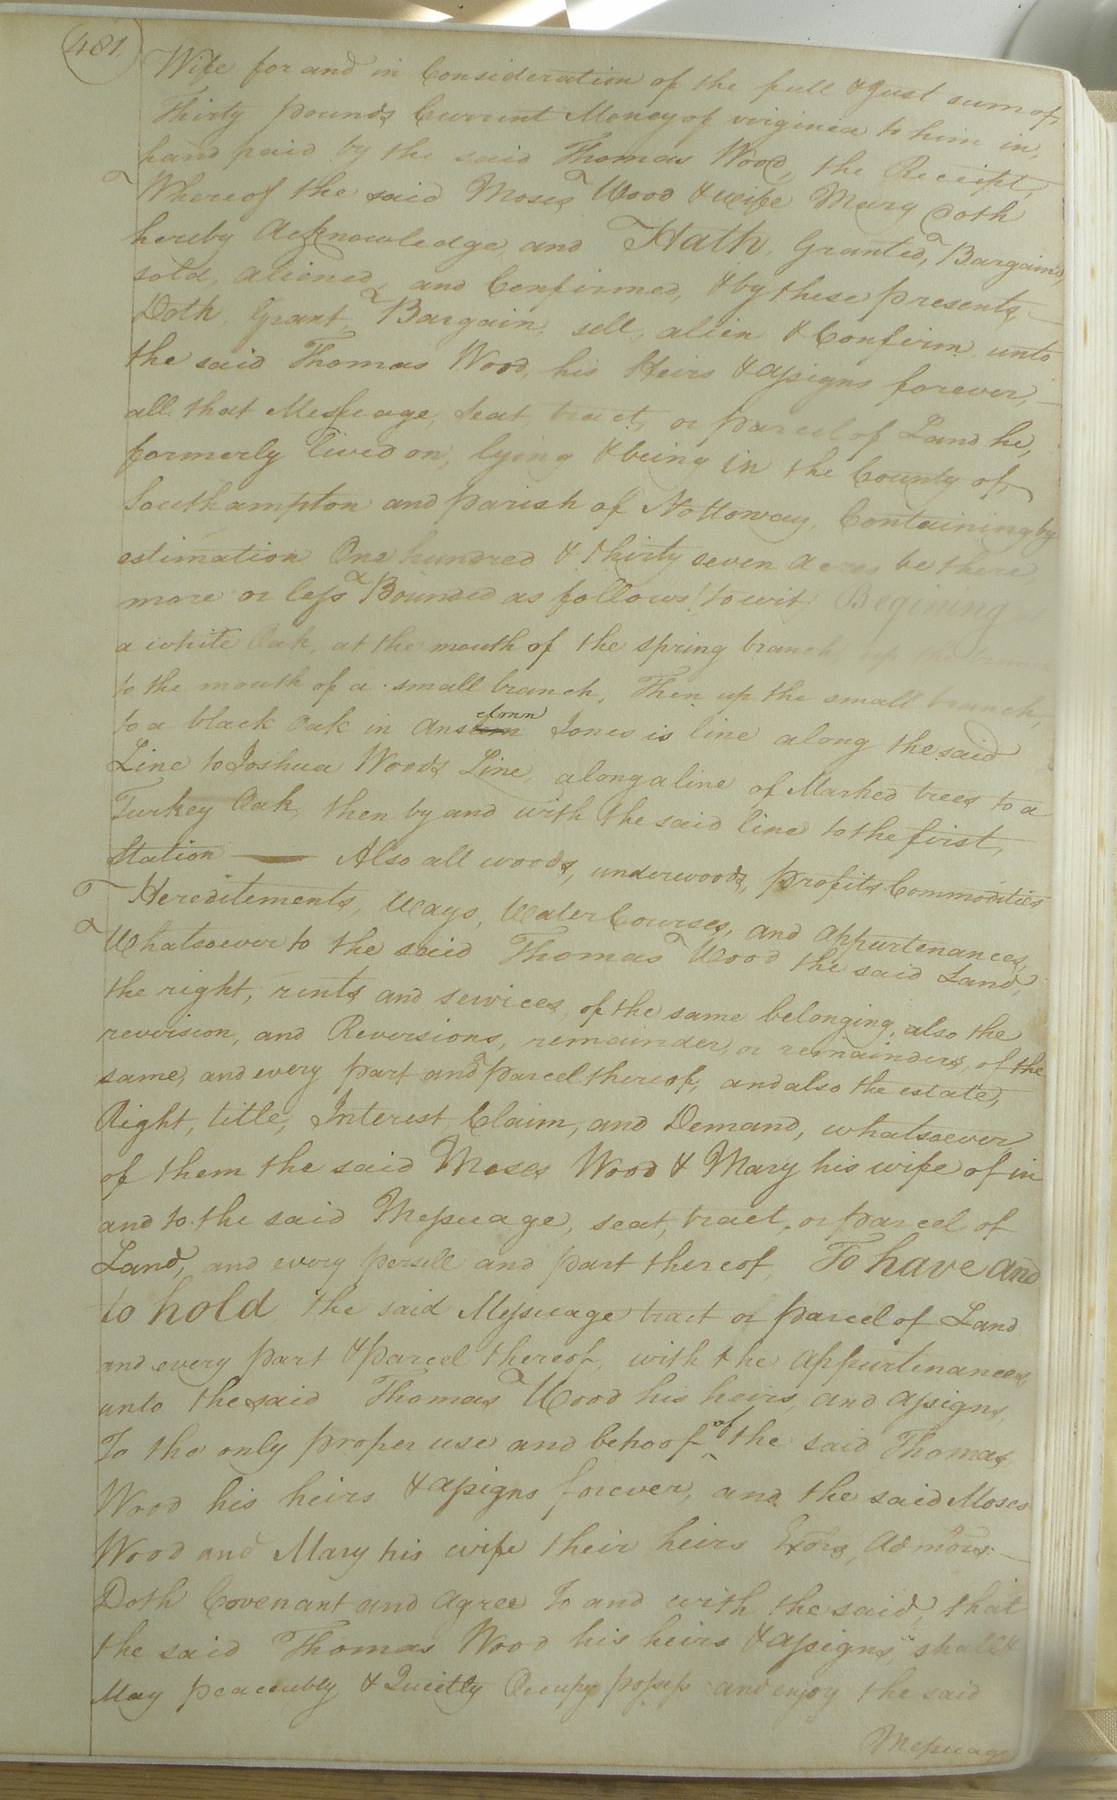 481
Wife for and in Consideration of the full & Just sum of,
Thirty pounds Current Money of virginia to him in,
hand paid by the said Thomas Wood, the Receipt,
Whereof the said Moses Wood & wife Mary doth
hereby Acknowledge, and Hath, Granted, Bargain'd,
sold, aliened, and Confirmed, & by these presents,
Doth Grant, Bargain, sell, alien & Confirm unto
the said Thomas Wood, his Heirs & assigns forever,
all that Messuage, seat, tract, or parcel of Land he,
formerly lived on, lying & being in the County of,
Southampton and parish of Nottoway, Containing by
estimation One hundred & thirty seven acres be there,
more or less Bounded as follows! to wit: Begining
a white Oak, at the mouth of the spring branch, up the branch
to the mouth of a small branch, Then up the small branch,
to a black Oak in Jones is line along the said
Line to Joshua Woods Line, along a line of Marked trees to a
Turkey Oak, then by and with the said line to the first,
Station — Also all woods, underwoods, profits Commodities
Hereditements, Ways, Water Courses, and appurtenances,
Whatsoever to the said Thomas Wood the said Land,
the right, rents and services, of the same belonging, also the
revirsion, and Reversions, remainder, or remainders, of the
same, and every part and parcel thereof, and also the estate,
Right, title, Interest, Claim, and Demand, whatsoever
of them the said Moses Wood & Mary his wife of in
and to the said Messuage, seat, tract, or parcel of
Land, and every persell and part thereof, To have and
to hold the said Messuage tract or parcel of Land
and every part & parcel thereof, with the appurtenances,
unto the said Thomas Wood his heirs, and assigns,
To the only proper use and behoof of the said Thomas,
Wood his heirs & assigns forever, and the said Moses
Wood and Mary his wife their heirs Exors, Admors
Doth Covenant and agree To and with the said, that
the said Thomas Wood his heirs & assigns, shall &
May peaceubly & Quietly Occupy possess and enjoy the said
Messuage